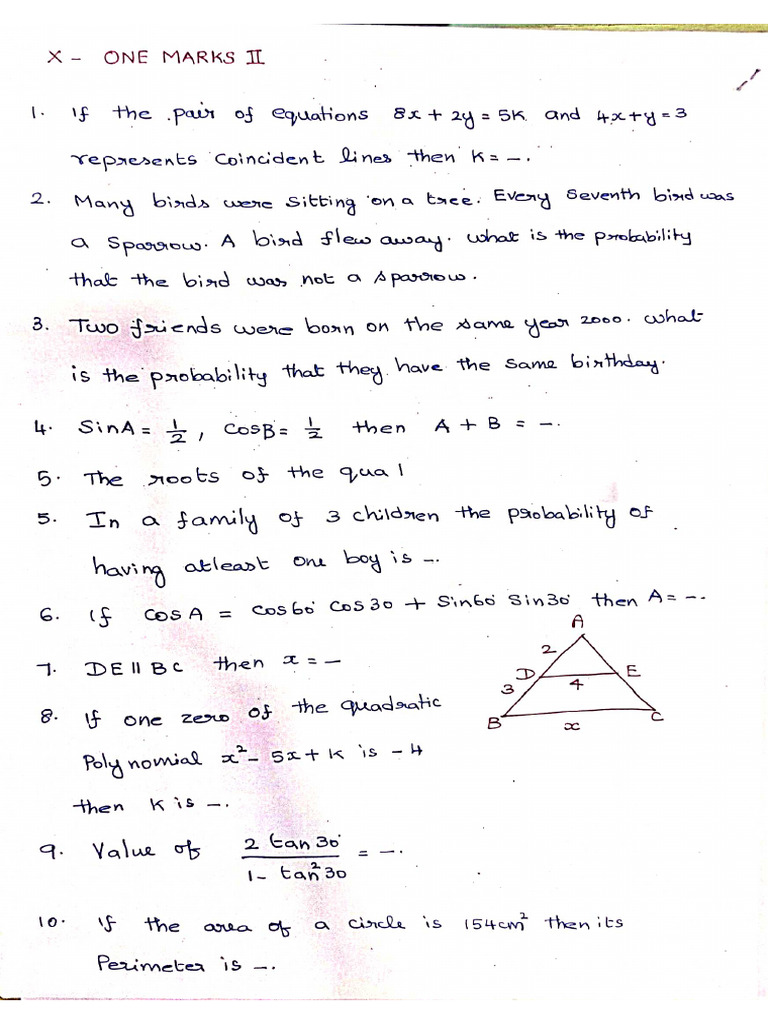 X - ONE MARKS II
1. If the pair of equations 8x + 2y = 5K and 4x+y = 3
represents coincident lines then K = -.
2. Many birds were sitting on a tree. Every seventh bird was
a sparrow. A bird flew away. what is the probability
that the bird was not a sparrow.
3. Two friends were born on the same year 2000. what
is the probability that they have the same birthday.
4. SinA = 1/2, CosB = 1/2 then A + B = -.
5. The roots of the qua l
5. In a family of 3 children the probability of
having atleast one boy is -.
6. If COSA = Cos60° Cos30 + Sin60° Sin30° then A = -.
7. DE || BC then x = -
A
2
D
E
3
4
B
C
x
8. If one zero of the quadratic
Polynomial x² - 5x + K is - 4
then K is -.
9. Value of 2 tan30° / 1 - tan²30 = -.
10. If the area of a circle is 154cm² then its
Perimeter is -.